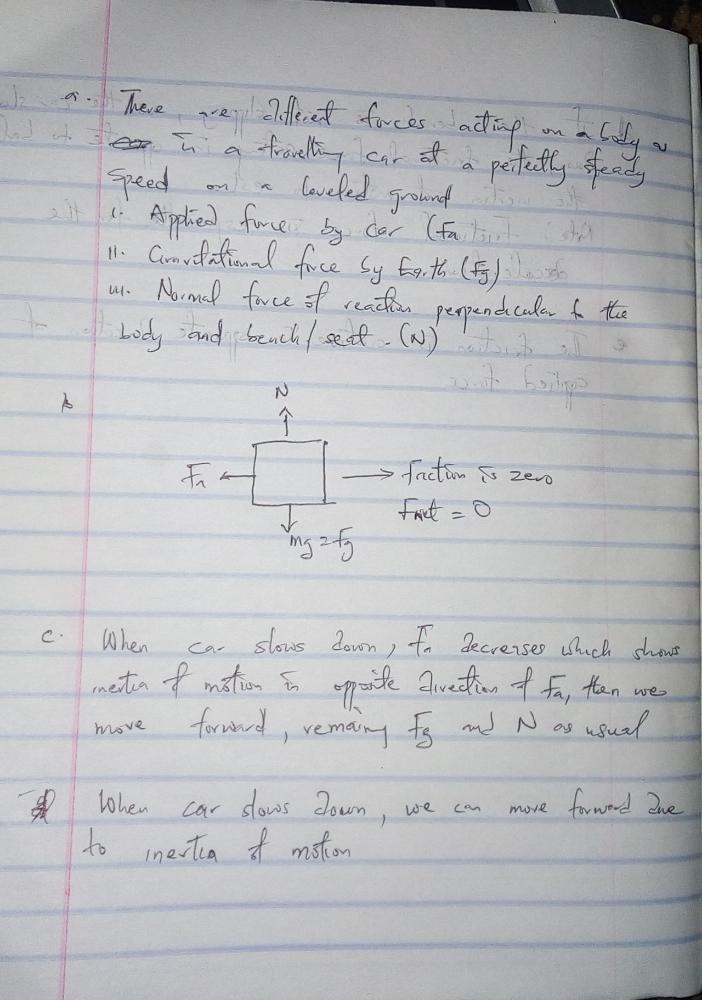 a. There are different forces acting on a body
in a travelling car at a perfectly steady
speed on a leveled ground
i. Applied force by car (Fa
ii. Gravitational force by Earth (Fg)
iii. Normal force of reaction perpendicular to the
body and bench/seat. (N)
b
N
Fa
friction is zero
Fnet = 0
mg = fg
c. When car slows down, Fa decreases which shows
inertia of motion in opposite direction of Fa, then we
move forward, remaining Fg and N as usual
When car slows down, we can move forward due
to inertia of motion